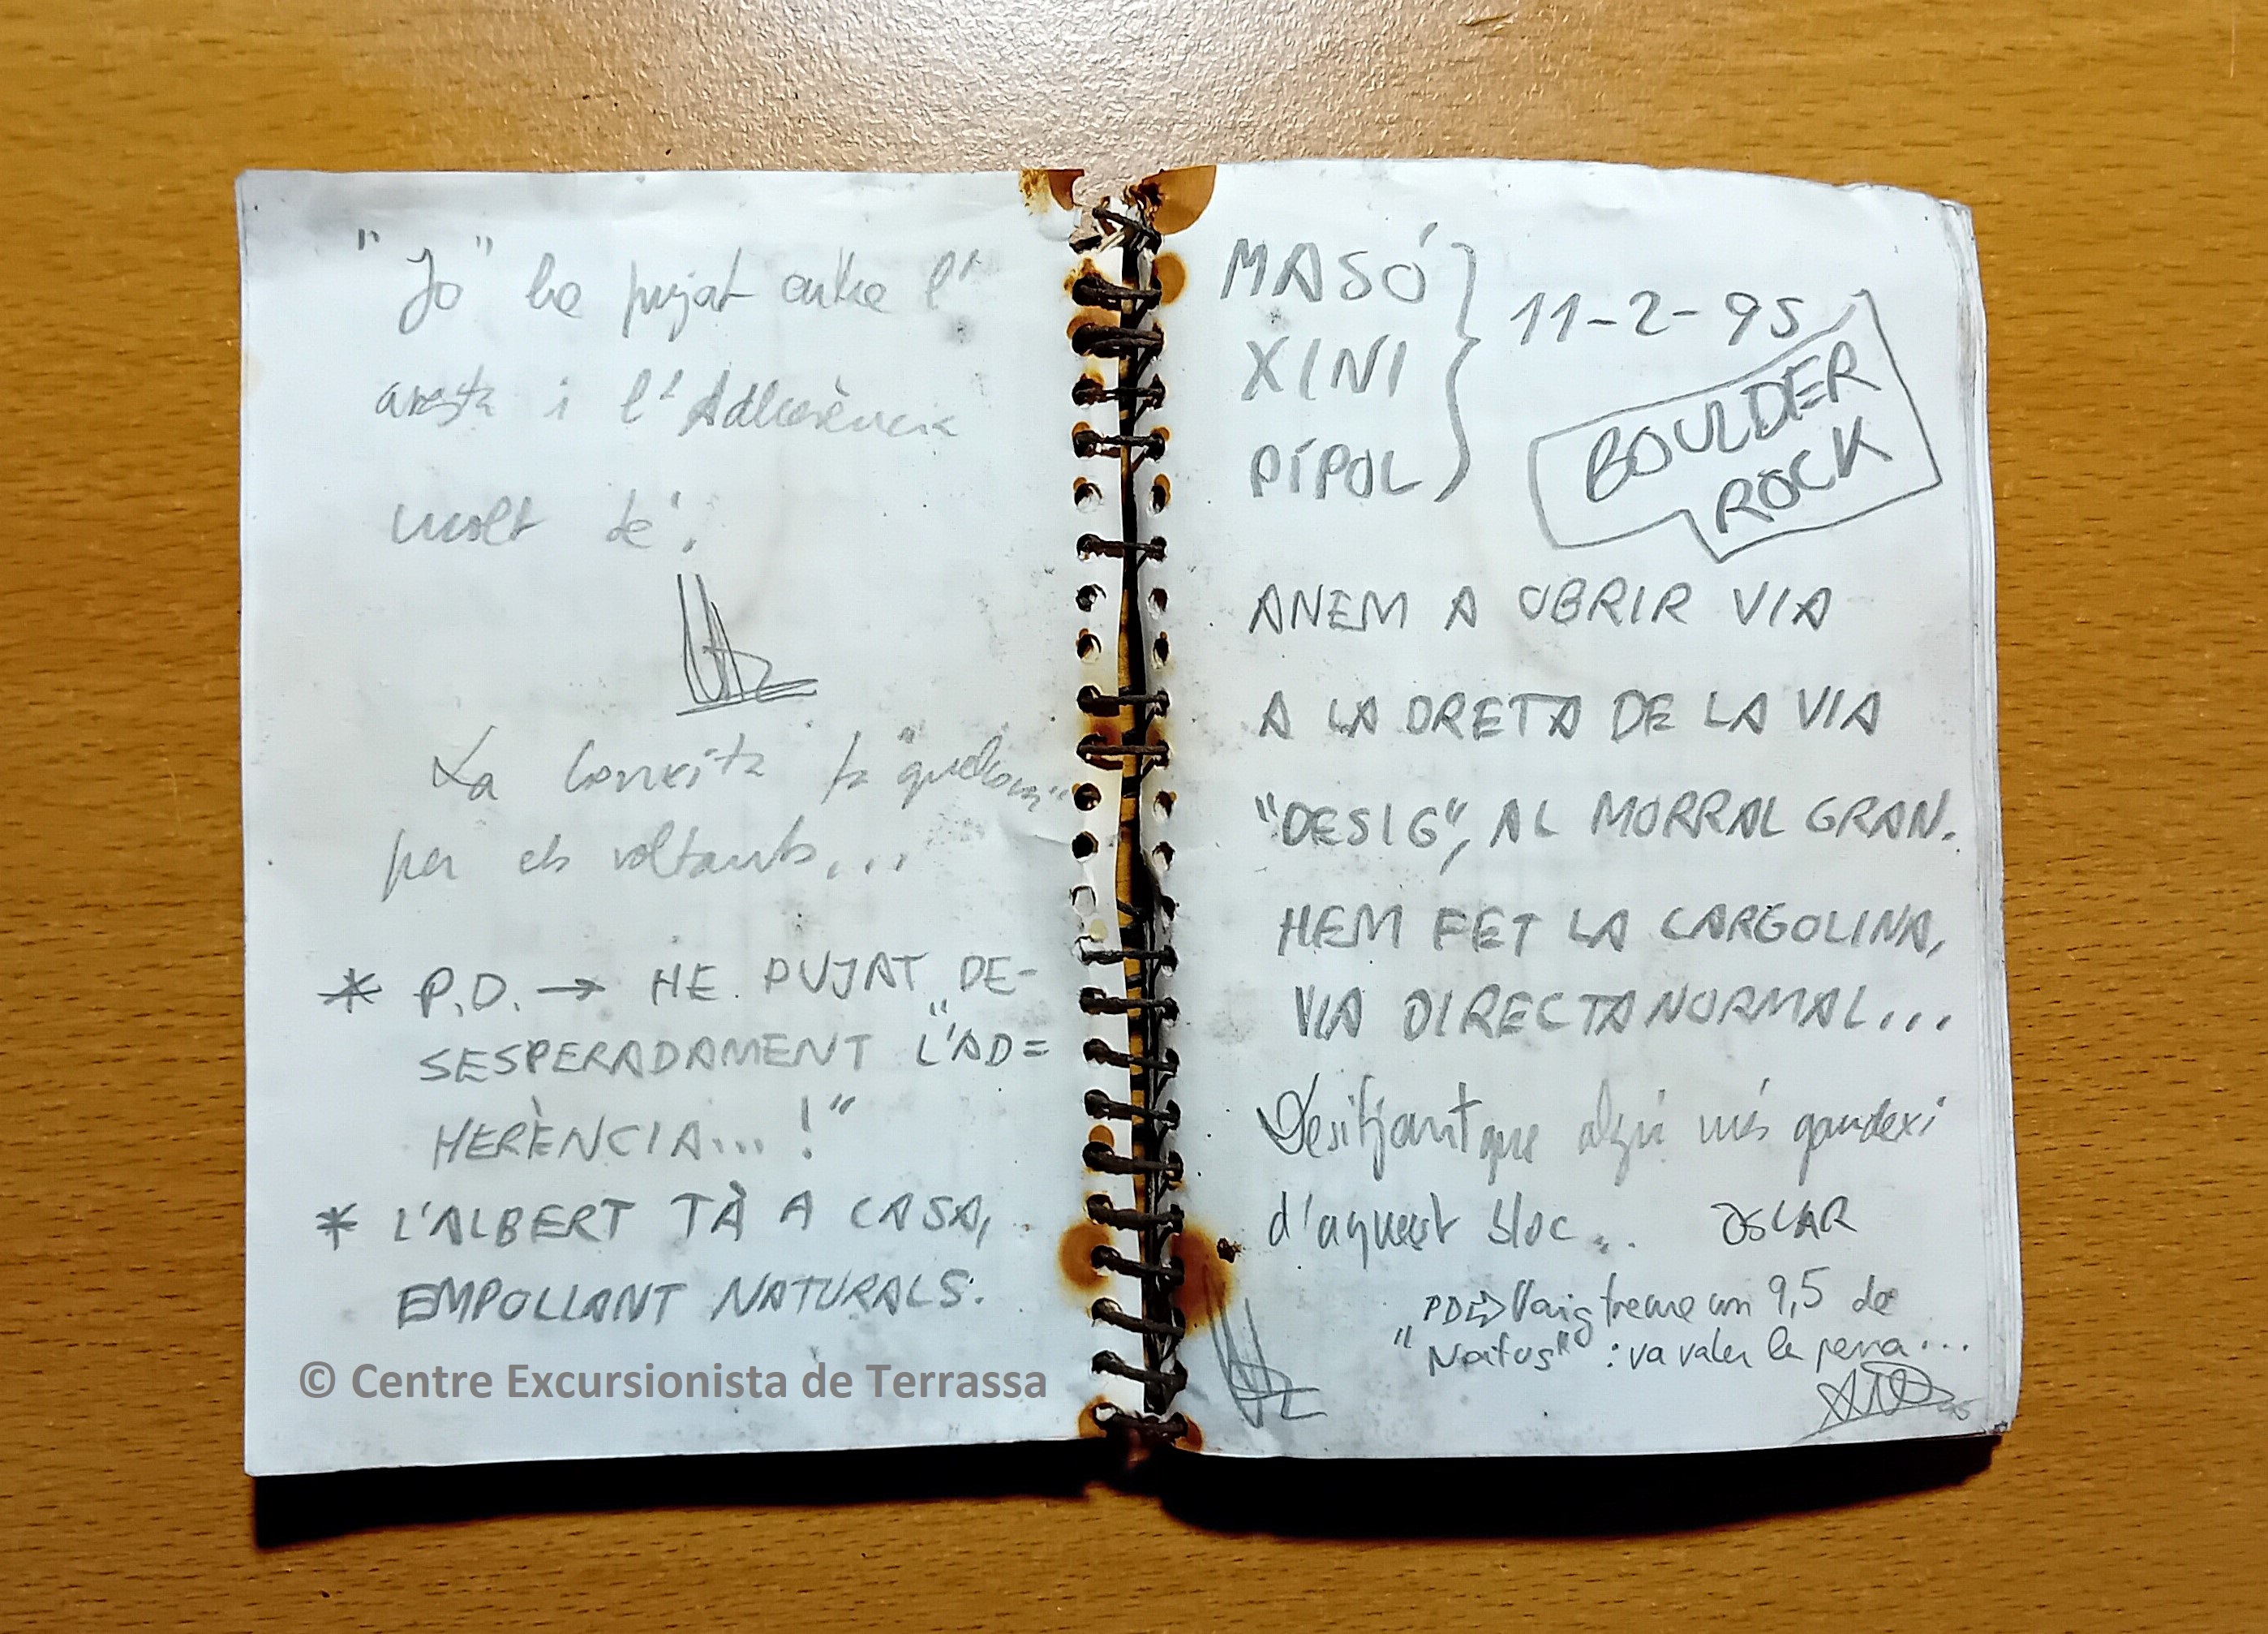 "Jo" he pujat entre l'
aresta i l'Adherència
molt bé!
La Conxita fa "quelcom"
per els voltants...
* P.D. → HE PUJAT "DE-
SESPERADAMENT L'AD=
HERÈNCIA...!"
* L'ALBERT TÀ A CASA,
EMPOLLANT NATURALS.
© Centre Excursionista de Terrassa
MASÓ
XINI
PÍPOL
11-2-95
BOULDER
ROCK
ANEM A OBRIR VIA
A LA DRETA DE LA VIA
"DESIG", AL MORRAL GRAN.
HEM FET LA CARGOLINA,
VIA DIRECTA NORMAL...
Desitjant que algú més gaudexi
d'aquest bloc... OSCAR
PD⇒ Vaig treure un 9,5 de
"Natus" : va valer la pena...